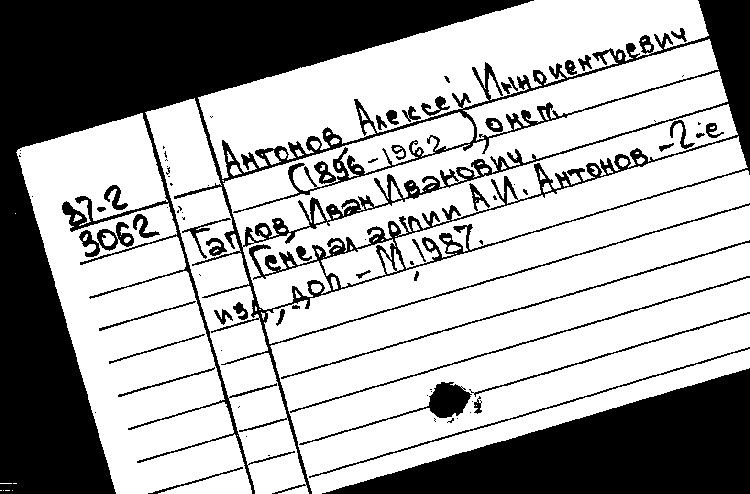 Антонов, Алексей Иннокентьевич
(1896-1962), о нем.
87-2
3062
Гаглов, Иван Иванович.
Генерал армии А.И. Антонов. - 2-е
изд., доп. - М., 1987.